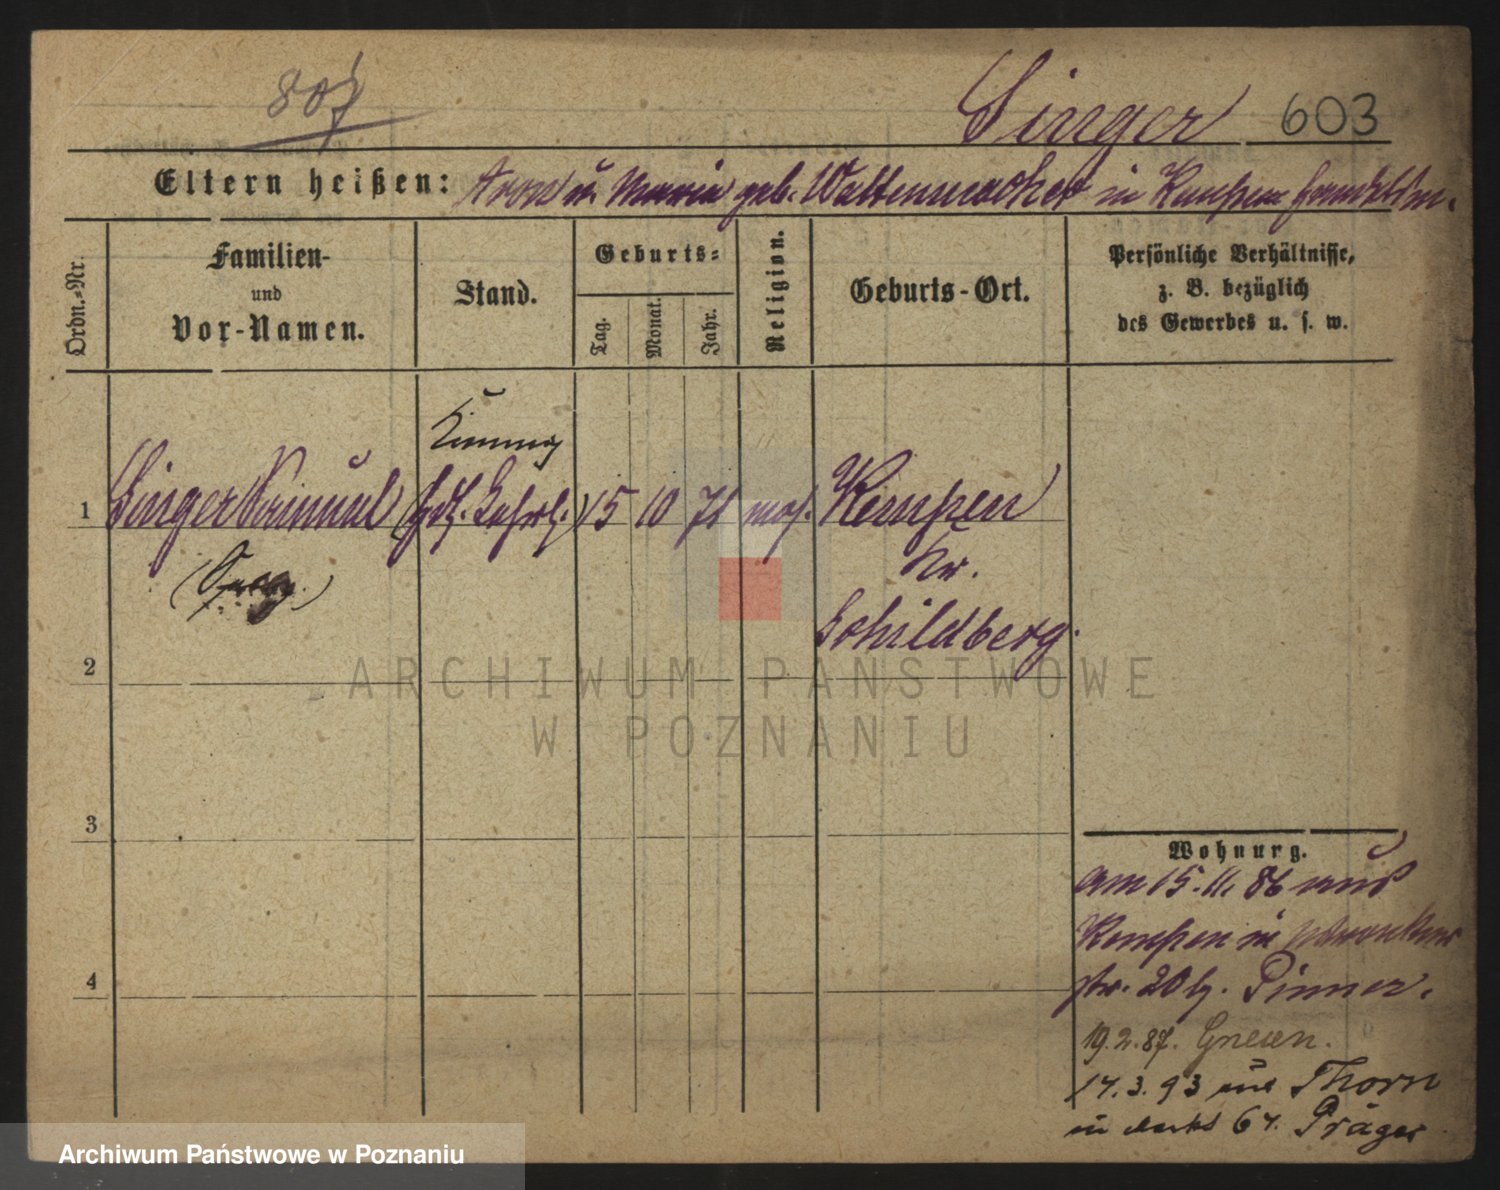 807
Singer 603
Eltern heißen: Aron u. Maria geb. Wattenmacher in Kempen
Ordn.-Nr.
Familien-
und
Vor-Namen.
Stand.
Geburts-
Tag.
Monat.
Jahr.
Religion.
Geburts-Ort.
Persönliche Verhältnisse,
z. B. bezüglich
des Gewerbes u. s. w.
1 Singer Samuel Hdl. Lehrl. 15 10 71 mos. Kempen
Kr.
Schildberg.
2
3
4
Wohnung.
am 15. 11. 86 aus
Kempen in
str. 20 b. Pinner.
19. 2. 87. Gnesen.
17. 3. 93 aus Thorn
in Markt 67. Präger
ARCHIWUM PAŃSTWOWE
W POZNANIU
Archiwum Państwowe w Poznaniu